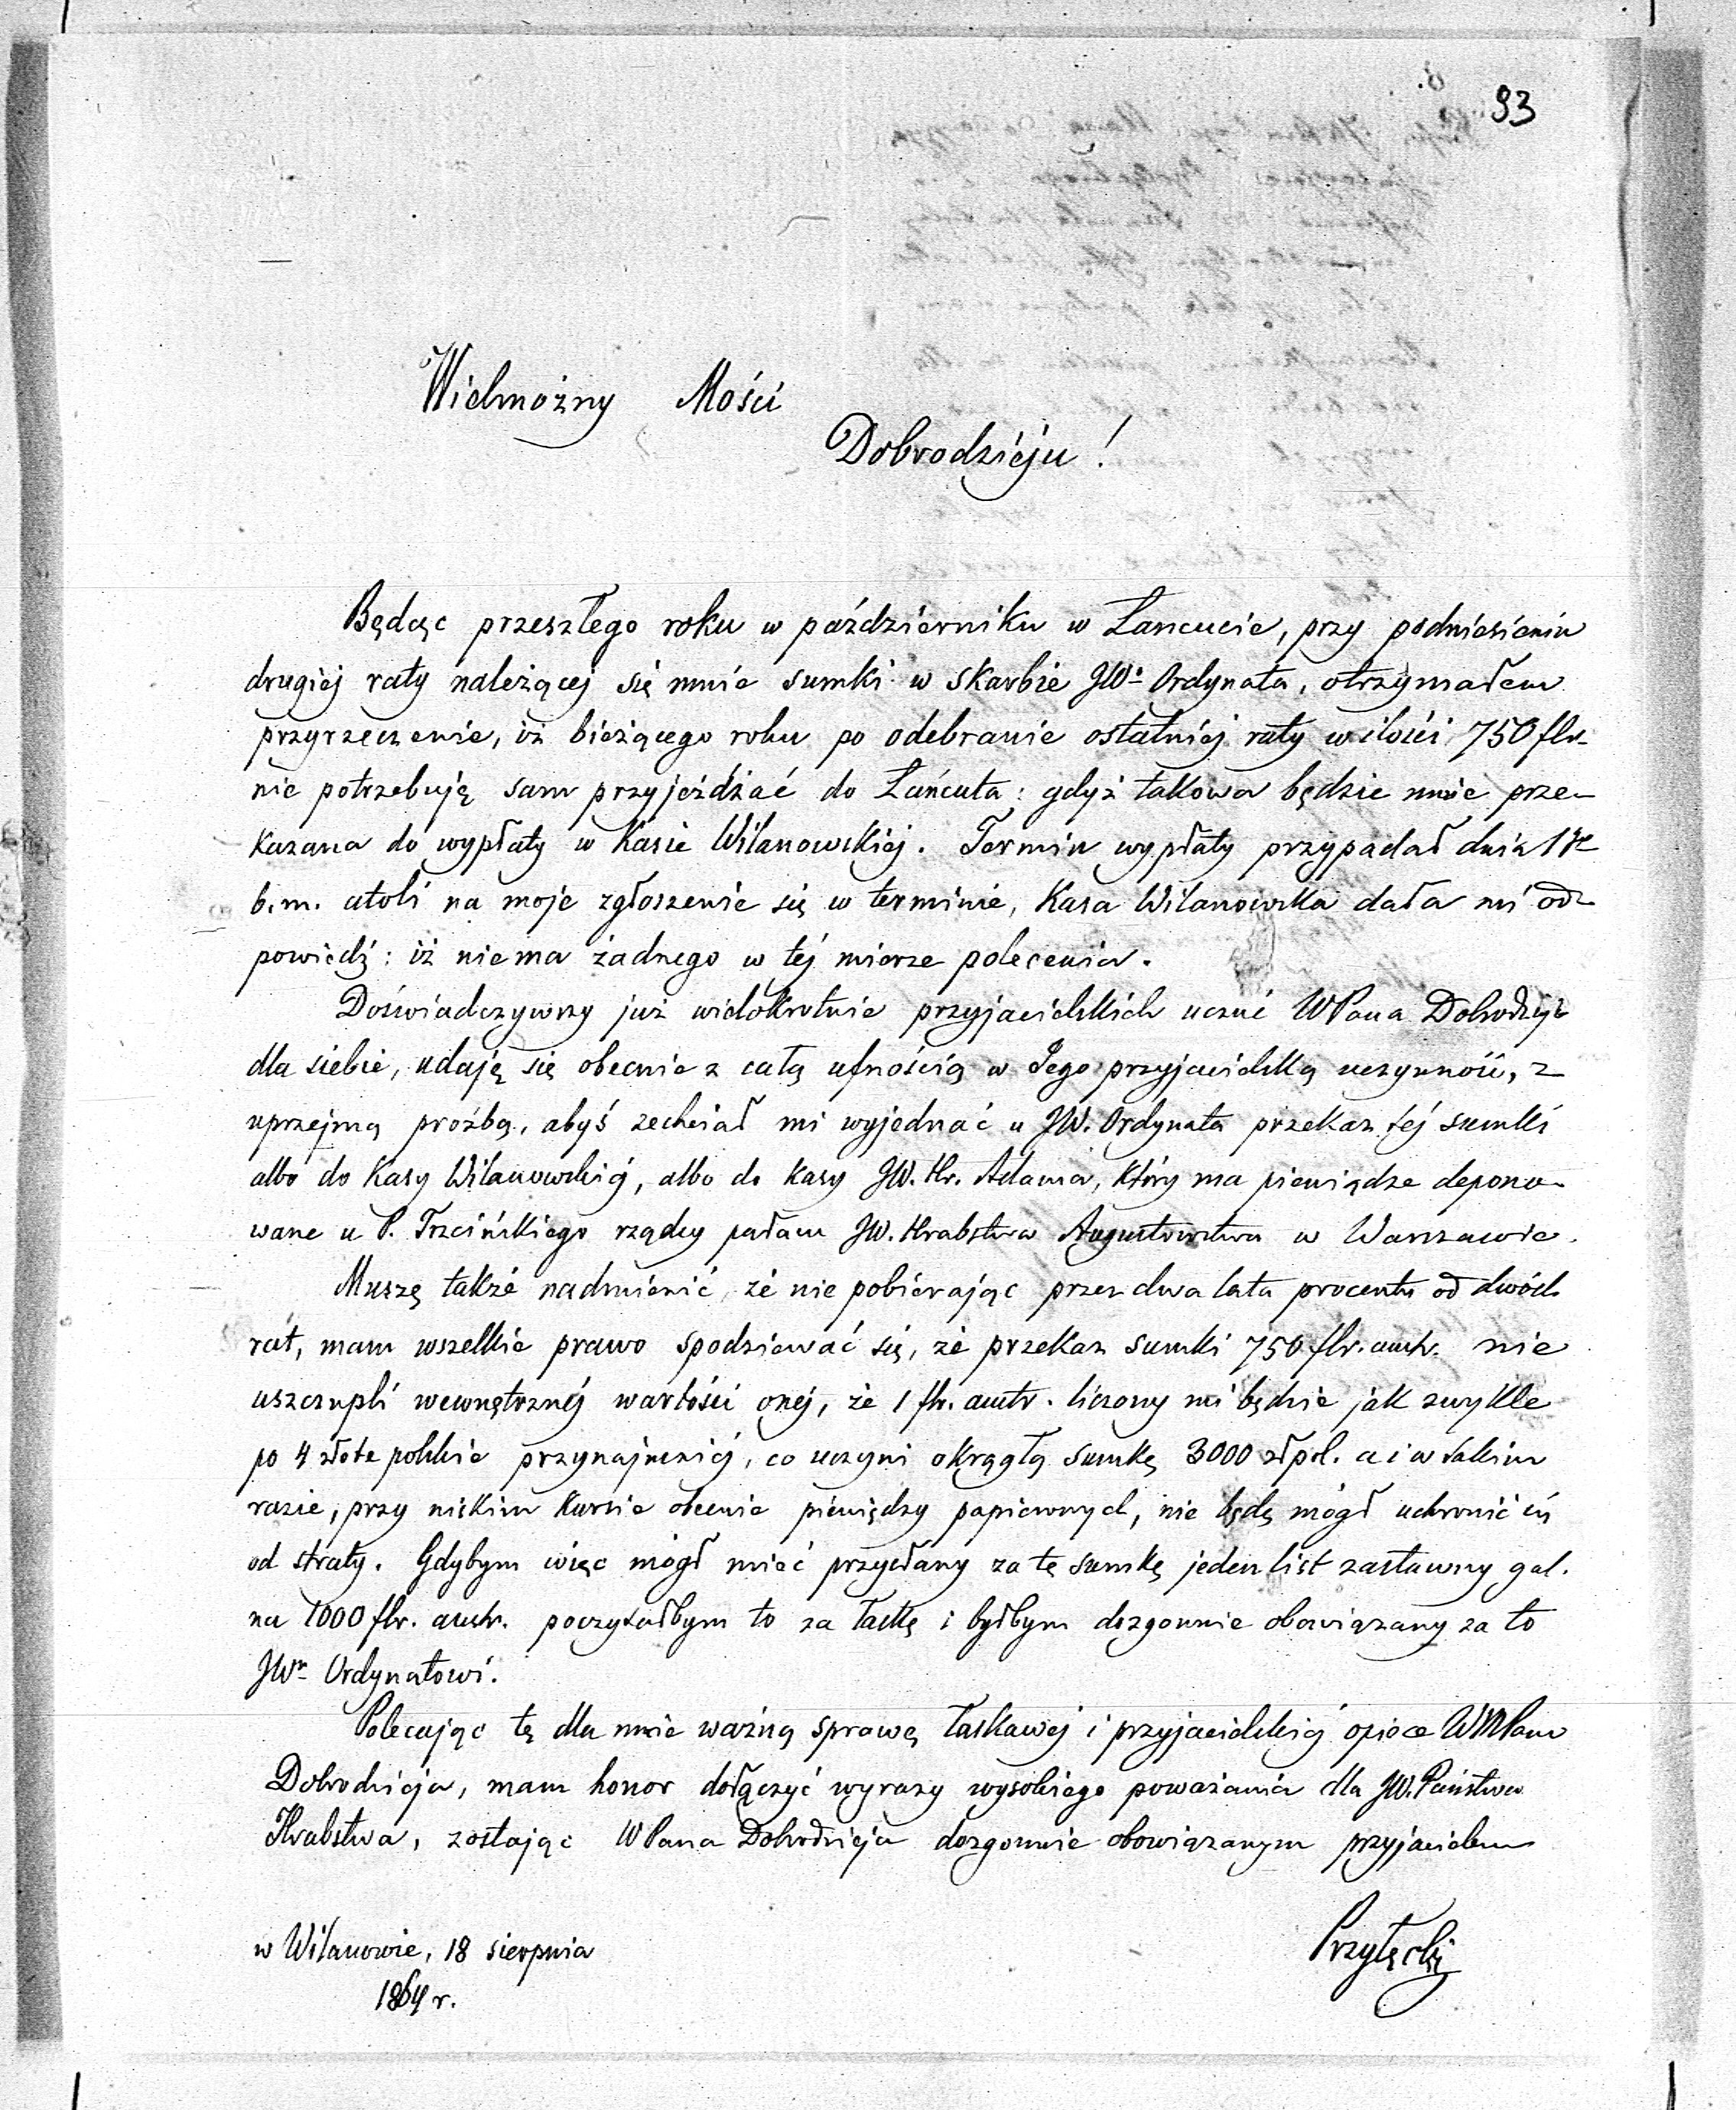 93
Wielmożny Mości
Dobrodzieju!
Będąc przeszłego roku w październiku w Łancucie, przy podniesieniu
drugiéj raty należącej się mnie sumki w skarbie JWo Ordynata, otrzymałem
przyrzeczenie, iż bieżącego roku po odebranie ostatniéj raty w ilości 750 flr.
nie potrzebuję sam przyjeżdżać do Łańcuta: gdyż takowa będzie mnie prze-
kazana do wypłaty w Kasie Wilanowskiéj. Termin wypłaty przypadał dnia 1go
b.m. atoli na moje zgłoszenie się w terminie, Kasa Wilanowska dała mi od-
powiedź: iż niema żadnego w téj mierze polecenia.
Doświadczywszy już wielokrotnie przyjacielskich uczuć WPana Dobrodzieja
dla siebie, udaję się obecnie z całą ufnością w Jego przyjacielską uczynność, z
uprzejmą prożbą, abyś zechciał mi wyjednać u JW. Ordynata przekaz téj sumki
albo do Kasy Wilanowskiéj, albo do kasy JW. Hr. Adama, który ma pieniądze depono-
wane u P. Trzcińskiego rządcy pałacu JW. Hrabstwa Augustowstwa w Warszawie.
Muszę także nadmienić, że nie pobierając przez dwa lata procentu od dwóch
rat, mam wszelkie prawo spodziewać się, że przekaz sumki 750 flr. austr. nie
uszczupli wewnętrznéj wartości onéj, że 1 flr. austr. liczony mi będzie jak zwykle
po 4 złote polskie przynajmniéj, co uczyni okrągłą sumkę 3000 złpol. a i w takim
razie, przy niskim kursie obecnie pieniędzy papierowych, nie będę mógł uchronić się
od straty. Gdybym więc mógł mieć przysłany za tę sumkę jeden list zastawny gal.
na 1000 flr. austr. poczytałbym to za łaskę i byłbym dozgonnie obowiązany za to
JWmu Ordynatowi.
Polecając tę dla mnie ważną sprawę łaskawéj i przyjacielskiéj opiece WMPana
Dobrodzieja, mam honor dołączyć wyrazy wysokiego poważania dla JW. Państwa
Hrabstwa, zostając WPana Dobrodzieja dozgonnie obowiązanym przyjacielem
Przyłęcki
w Wilanowie, 18 sierpnia
1864 r.